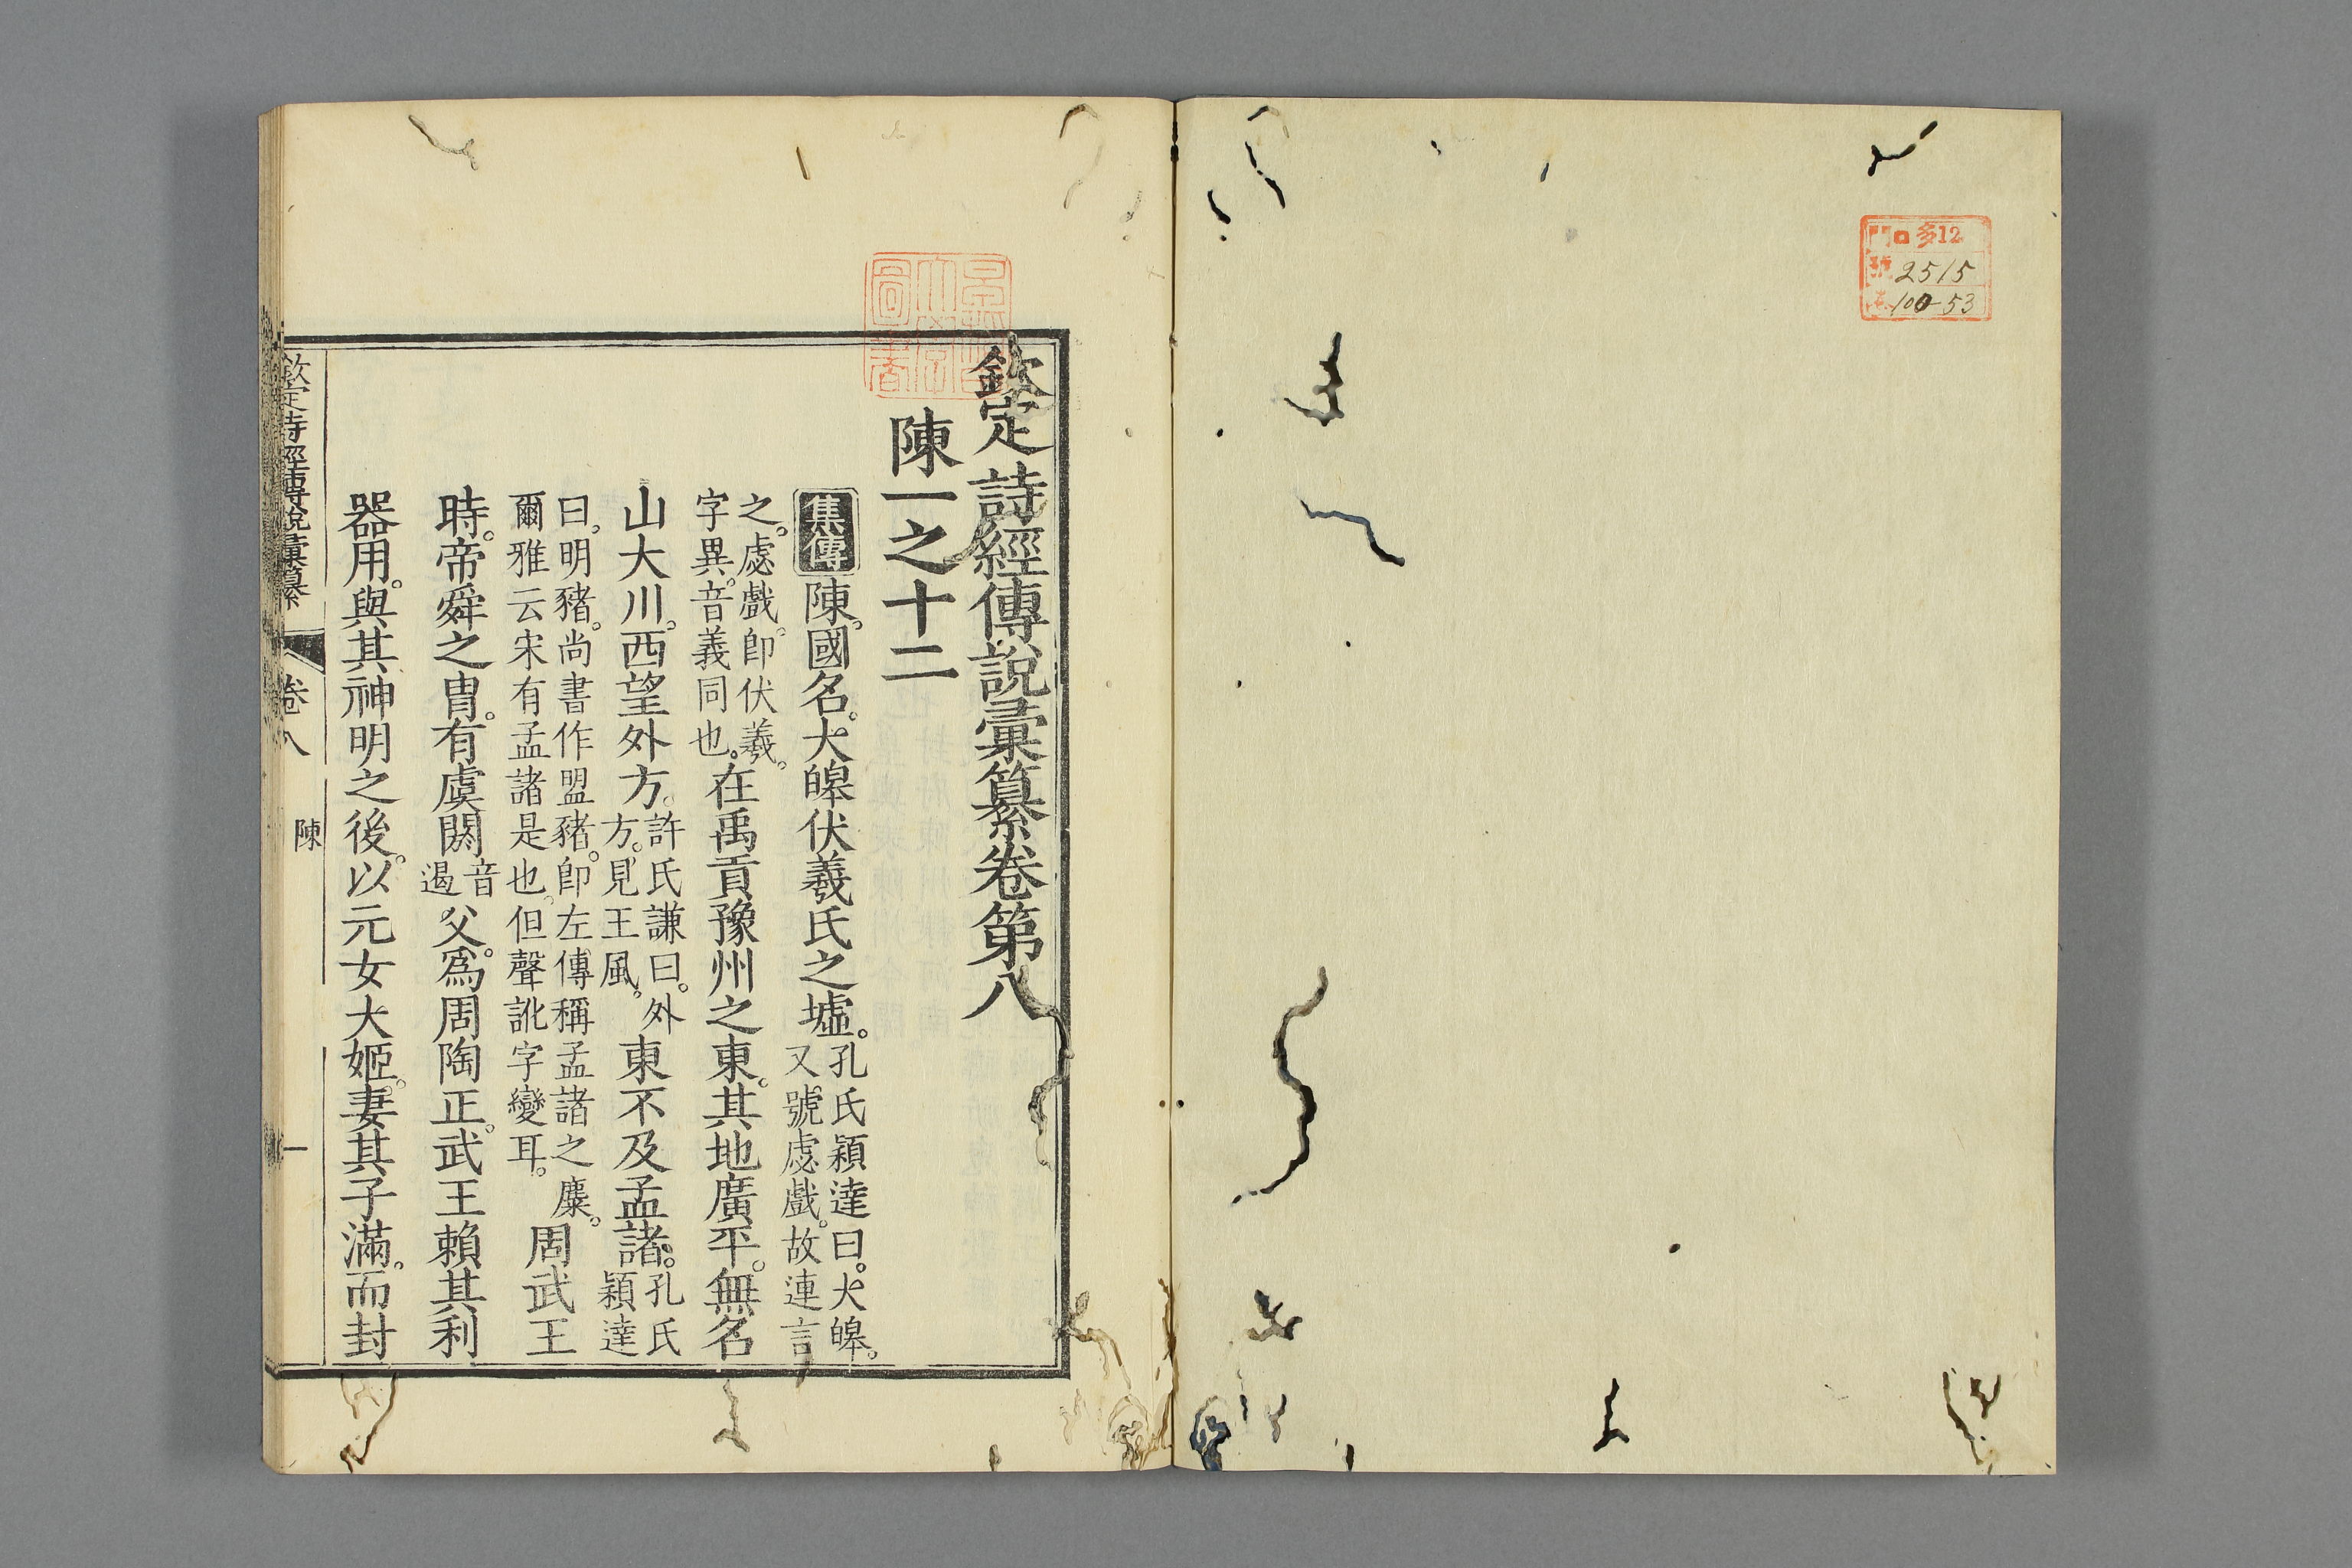 門口多12
號2515
100-53
欽定詩經傳說彙纂卷第八
陳一之十二
集傳陳。國名。大皡伏羲氏之墟。孔氏穎達曰。大皡。又號虙戲。故連言
之。虙戲。卽伏羲。字異。音義同也。在禹貢豫州之東。其地廣平。無名
山大川。西望外方。許氏謙曰。外方。見王風。東不及孟諸。孔氏穎達
曰。明豬。尚書作盟豬。卽左傳稱孟諸之麋。爾雅云宋有孟諸是也。但聲訛字變耳。周武王
時。帝舜之胄。有虞閼音遏父。爲周陶正。武王賴其利
器用。與其神明之後。以元女大姬。妻其子滿。而封
欽定詩經傳說彙纂 卷八 陳 一